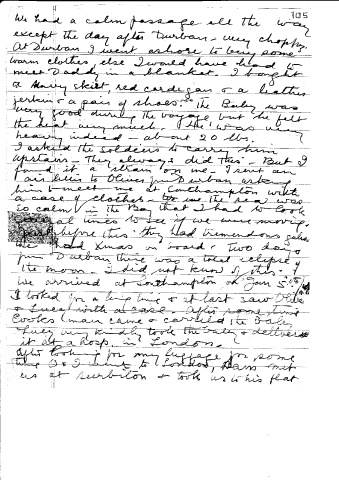 105
We had a calm passage all the way
except the day after Durban - very choppy.
At Durban I went ashore to buy some
warm clothes, else I would have had to
meet Daddy in a blanket. I bought
a navy skirt, red cardigan & a leather
jerkin & a pair of shoes. The Baby was
very good during the voyage but he felt
the heat very much. He was very
heavy indeed - about 20 lbs.
I asked the soldiers to carry him
upstairs - They always did this - But I
found it a strain on me. I sent an
air from Durban asking
him to meet me at Southampton with
a case of clothes - the sea was
so calm in the Bay that I had to look
at times to see if we were moving.
before this they had tremendous gales
We had Xmas on board. Two days
from Durban there was a total eclipse of
the moon - I did not know of this.
We arrived at Southampton on Jan 5th
I looked for a long time & at last saw
& with a case. After some time
Cooks man came & carried the Baby
They very kindly took the & delivered
it at a hosp. in London.
After looking for my luggage for some
time I went to London, met
us at Surbiton & took us to his flat